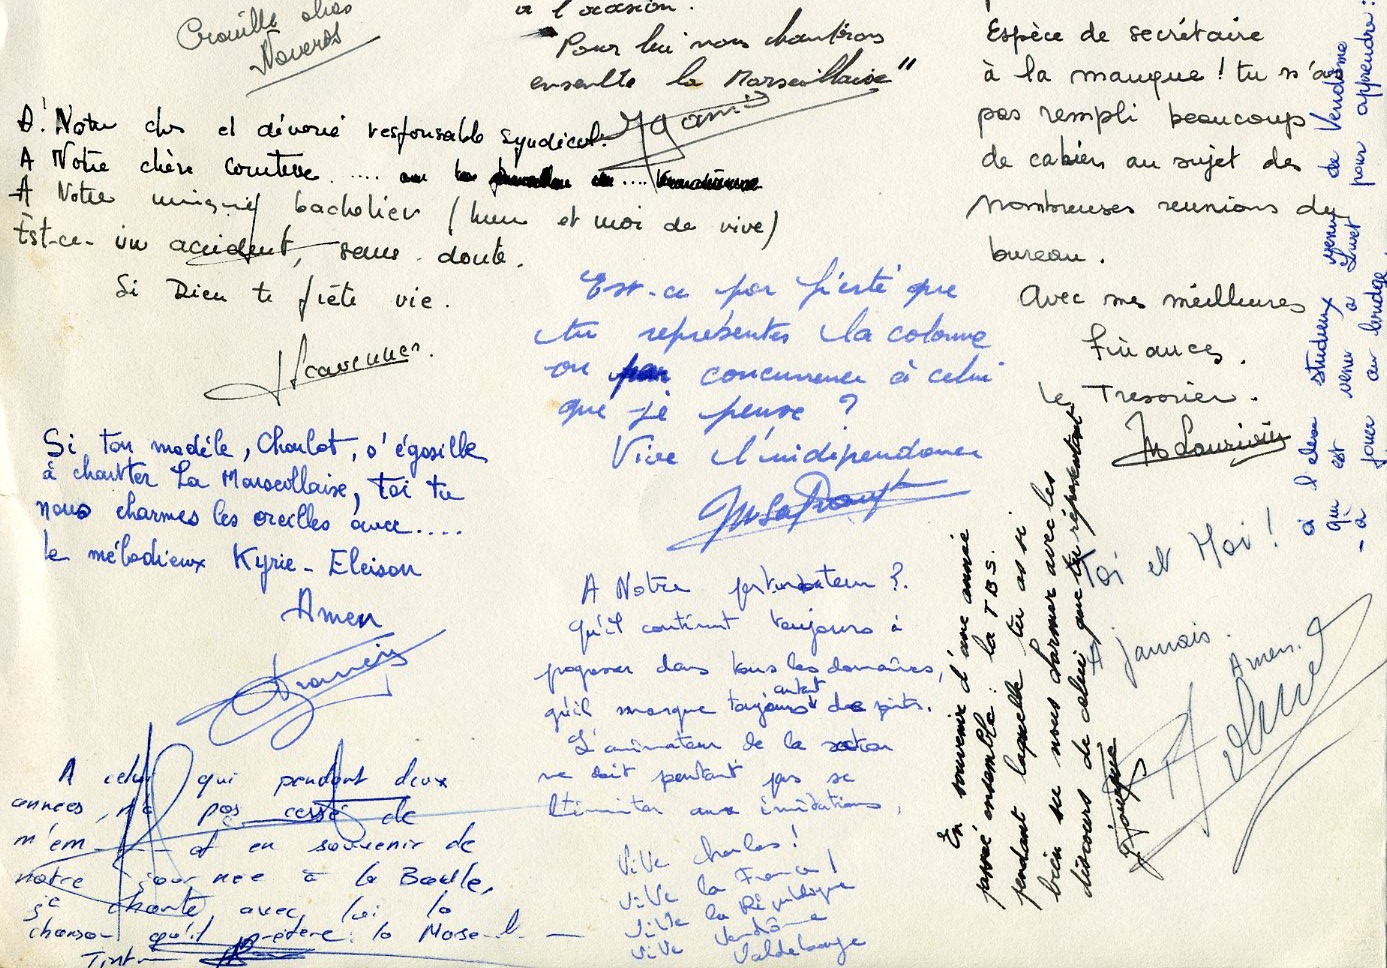 à l'occasion.
"Pour lui nous chanterons
ensemble la Marseillaise"
A! Notre cher et dévoué responsable syndical.
A Notre chère .... ou la
A Notre unique bachelier (lui et moi de vive)
Est-ce un accident, sans doute.
Si Dieu te prête vie.
Si ton modèle, Charlot, s'égosille
à chanter La Marseillaise, toi tu
nous charmes les oreilles avec....
le mélodieux Kyrie - Eleison
Amen
Francis
A celui qui pendant deux
années, n'a pas cessé de
m'em— et en souvenir de
notre journée à la Baule,
je chante, avec, lui la
chanson qu'il préfère: la Marse-l-
Est-ce par fierté que
tu représentes la colonne
ou par concurrence à celui
que je pense ?
Vive l'indépendance
A Notre perturbateur ?.
Qu'il continue toujours à
progresser dans tous les domaines,
qu'il marque toujours autant de pts.
L'animateur de la section
ne doit pourtant pas se
limiter aux imitations,
ViVe Charles !
ViVe la France !
ViVe la République
ViVe Vendôme
ViVe
Espèce de secrétaire
à la manque ! tu n'as
pas rempli beaucoup
de cahiers au sujet des
nombreuses reunions du
bureau.
Avec mes meilleures
Finances.
le Tresorier.
à l'eleve studieux venu de Vendôme
qui est venu à pour apprendre :
- à jouer au bridge
En souvenir d'une année
passée ensemble : la TBS.
pendant laquelle tu as si
bien su nous charmer avec les
discours de celui que tu représentait
Toi et Moi !
A jamais.
Amen.